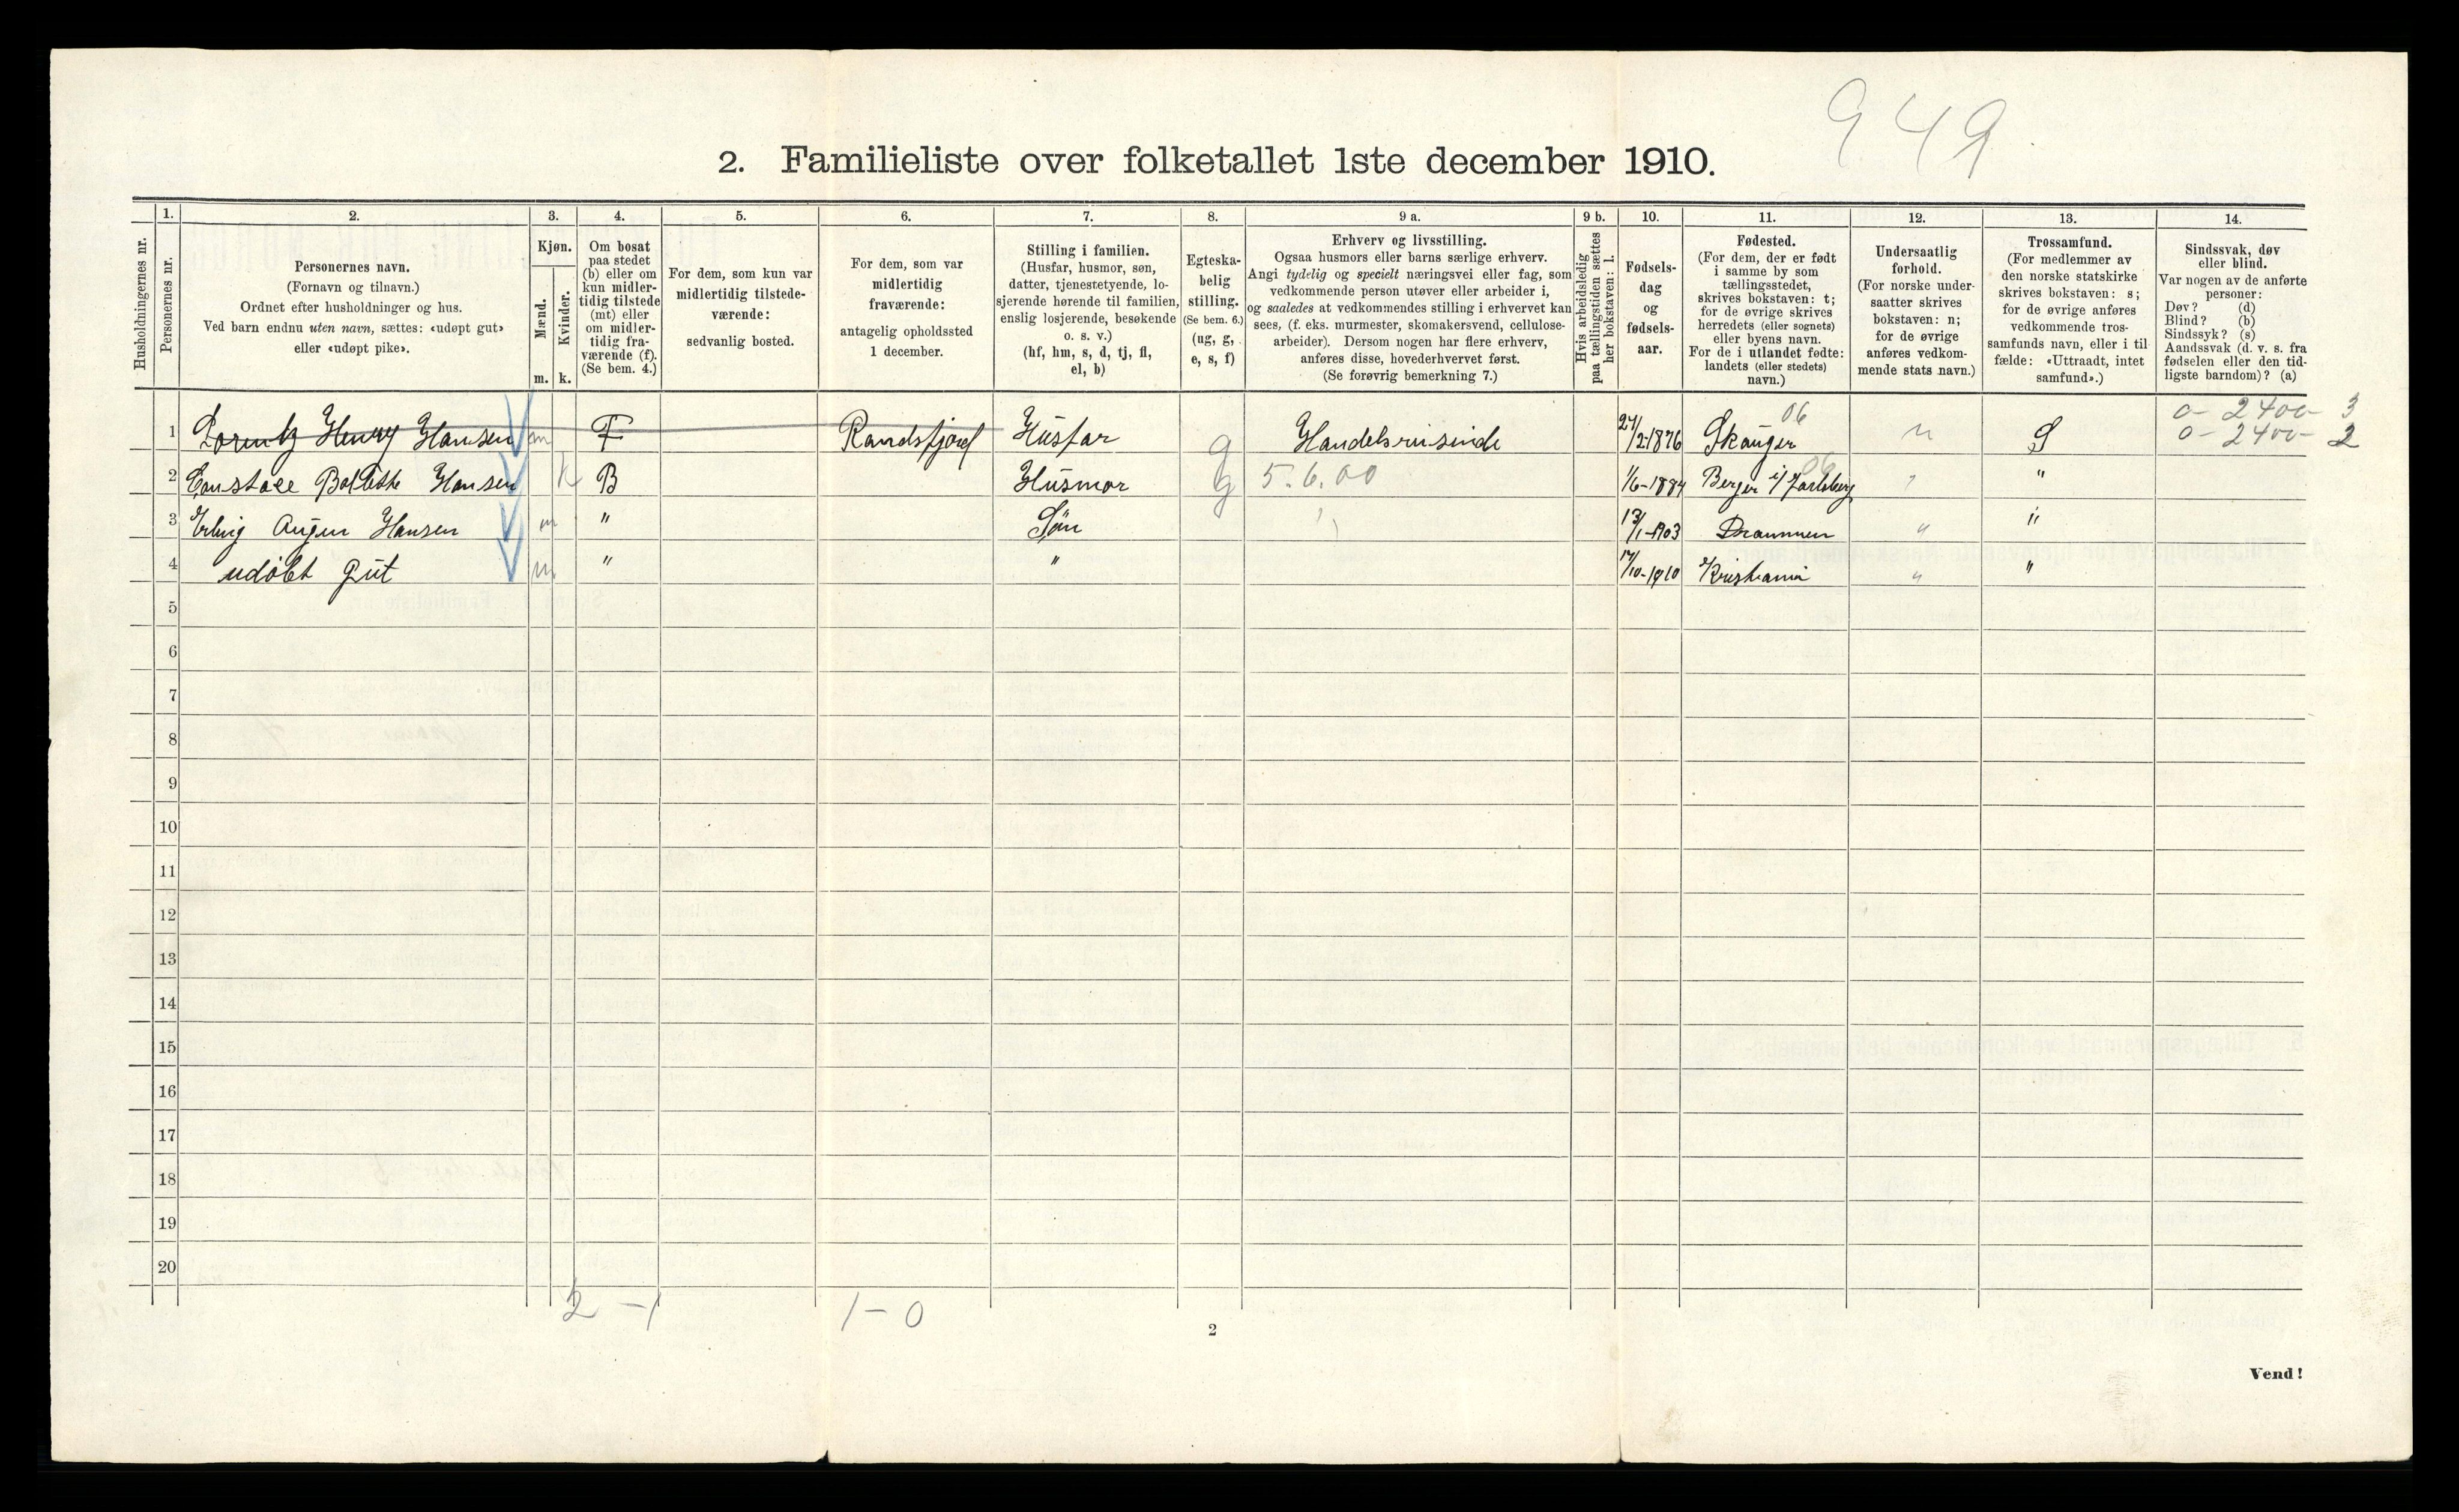 949
2. Familieliste over folketallet 1ste december 1910.
Husholdningernes nr.
1. Personernes nr.
2. Personernes navn.
(Fornavn og tilnavn.)
Ordnet efter husholdninger og hus.
Ved barn endnu uten navn, sættes: «udøpt gut»
eller «udøpt pike».
3. Kjøn.
Mænd. m.
Kvinder. k.
4. Om bosat
paa stedet
(b) eller om
kun midler-
tidig tilstede
(mt) eller
om midler-
tidig fra-
værende (f).
(Se bem. 4.)
5. For dem, som kun var
midlertidig tilstede-
værende:
sedvanlig bosted.
6. For dem, som var
midlertidig
fraværende:
antagelig opholdssted
1 december.
7. Stilling i familien.
(Husfar, husmor, søn,
datter, tjenestetyende, lo-
sjerende hørende til familien,
enslig losjerende, besøkende
o. s. v.)
(hf, hm, s, d, tj, fl,
el, b)
8. Egteska-
belig
stilling.
(Se bem. 6.)
(ug, g,
e, s, f)
9 a. Erhverv og livsstilling.
Ogsaa husmors eller barns særlige erhverv.
Angi tydelig og specielt næringsvei eller fag, som
vedkommende person utøver eller arbeider i,
og saaledes at vedkommendes stilling i erhvervet kan
sees, (f. eks. murmester, skomakersvend, cellulose-
arbeider). Dersom nogen har flere erhverv,
anføres disse, hovederhvervet først.
(Se forøvrig bemerkning 7.)
9 b. Hvis arbeidsledig
paa tællingstiden sættes
her bokstaven: l.
10. Fødsels-
dag
og
fødsels-
aar.
11. Fødested.
(For dem, der er født
i samme by som
tællingsstedet,
skrives bokstaven: t;
for de øvrige skrives
herredets (eller sognets)
eller byens navn.
For de i utlandet fødte:
landets (eller stedets)
navn.)
12. Undersaatlig
forhold.
(For norske under-
saatter skrives
bokstaven: n;
for de øvrige
anføres vedkom-
mende stats navn.)
13. Trossamfund.
(For medlemmer av
den norske statskirke
skrives bokstaven: s;
for de øvrige anføres
vedkommende tros-
samfunds navn, eller i til
fælde: «Uttraadt, intet
samfund».)
14. Sindssvak, døv
eller blind.
Var nogen av de anførte
personer:
Døv? (d)
Blind? (b)
Sindssyk? (s)
Aandssvak (d. v. s. fra
fødselen eller den tid-
ligste barndom)? (a)
06 0- 2400- 3
1 Lorentz Henry Hansen m F Randsfjord Husfar g Handelsreisende 24/2-1876 Skauger n S 0- 2400- 2
2 Hansen k B Husmor g 5.6.00 1/6-1884 Berger i/Jarlsberg 06 "
3 Erling Hansen m " Søn 13/1-1903 Drammen " "
4 udøbt Gut m " " 17/10-1910 Kristiania " "
5
6
7
8
9
10
11
12
13
14
15
16
17
18
19
20
2 - 1 1 - 0
2
Vend!